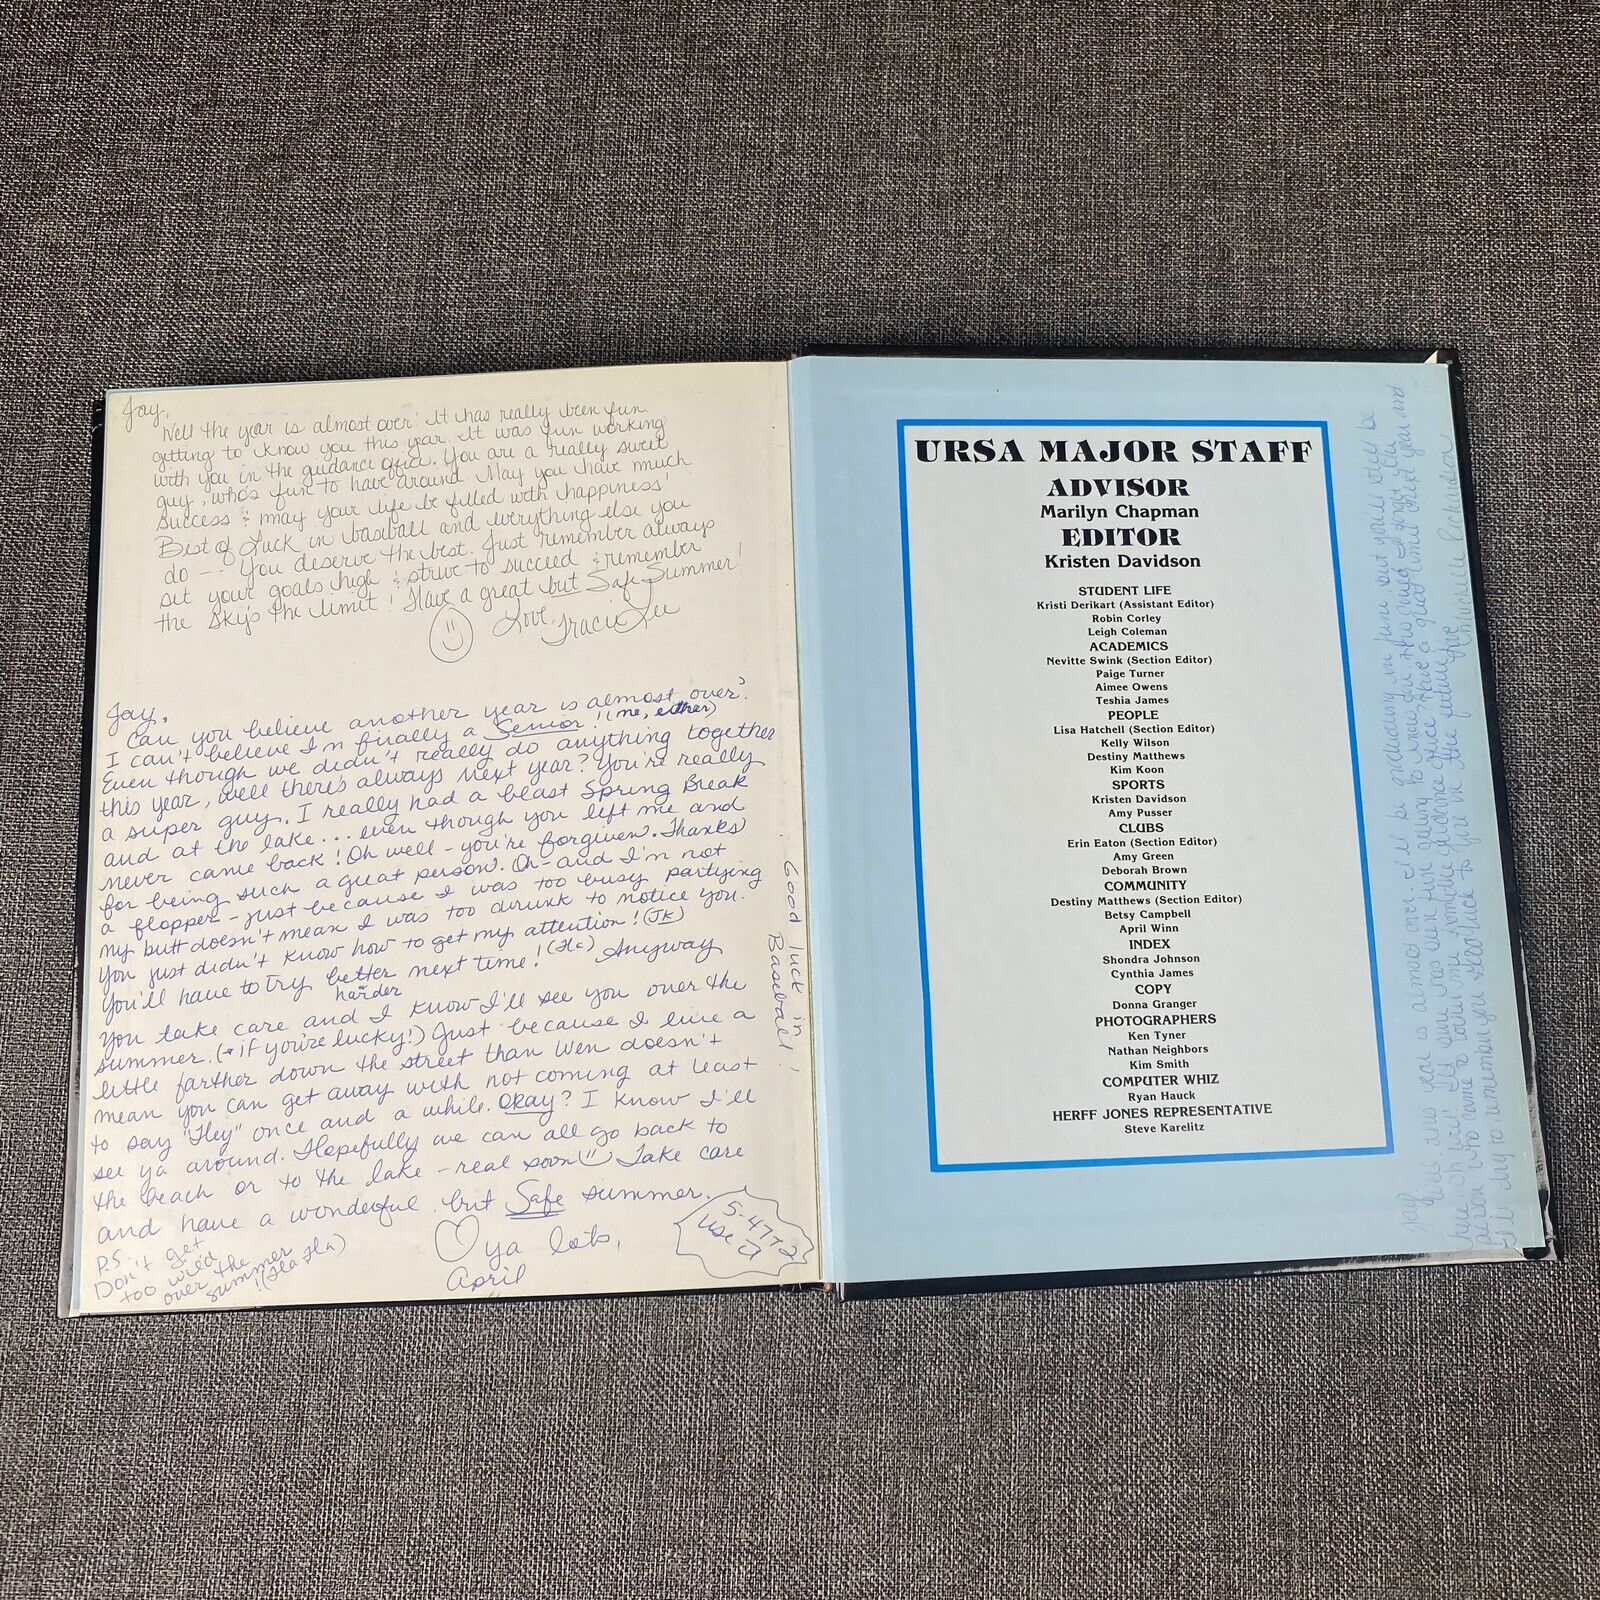 Jay,
Well the year is almost over! It has really been fun
getting to know you this year. It was fun working
with you in the guidance office. You are a really sweet
guy, who's fun to have around. May you have much
success & may your life be filled with happiness!
Best of Luck in baseball and everything else you
do -- You deserve the best. Just remember always
set your goals high & strive to succeed & remember
the sky's the limit! Have a great but Safe Summer!
Love,
Traci Lee
Jay,
Can you believe another year is almost over?
I can't believe I'm finally a Senior! (me, either)
Even though we didn't really do anything together
this year, well there's always next year? You're really
a super guy. I really had a blast Spring Break
and at the lake... even though you left me and
never came back! Oh well - you're forgiven. Thanks
for being such a great person. Oh - and I'm not
a flopper - just because I was too busy partying
my butt doesn't mean I was too drunk to notice you.
You just didn't know how to get my attention! (JK)
You'll have to try better next time! (Ha) Anyway
harder
you take care and I know I'll see you over the
summer. (* if you're lucky!) Just because I live a
little farther down the street than Wen doesn't
mean you can get away with not coming at least
to say "Hey" once and a while. Okay? I know I'll
see ya around. Hopefully we can all go back to
the beach or to the lake - real soon Take care
and have a wonderful but Safe summer.
ya lots,
April
P.S.
Don't get
too wild
over the
summer
! (Ha Ha)
5-4772
use it
Good luck in
Baseball!
URSA MAJOR STAFF
ADVISOR
Marilyn Chapman
EDITOR
Kristen Davidson
STUDENT LIFE
Kristi Derikart (Assistant Editor)
Robin Corley
Leigh Coleman
ACADEMICS
Nevitte Swink (Section Editor)
Paige Turner
Aimee Owens
Teshia James
PEOPLE
Lisa Hatchell (Section Editor)
Kelly Wilson
Destiny Matthews
Kim Koon
SPORTS
Kristen Davidson
Amy Pusser
CLUBS
Erin Eaton (Section Editor)
Amy Green
Deborah Brown
COMMUNITY
Destiny Matthews (Section Editor)
Betsy Campbell
April Winn
INDEX
Shondra Johnson
Cynthia James
COPY
Donna Granger
PHOTOGRAPHERS
Ken Tyner
Nathan Neighbors
Kim Smith
COMPUTER WHIZ
Ryan Hauck
HERFF JONES REPRESENTATIVE
Steve Karelitz
Jay, Well this year is almost over. I'll be graduating in June but you'll still be
here. Oh well! It sure has been fun getting to know the
person who came to town me from the guidance office. Have a great time next year and
Good luck to you in the future